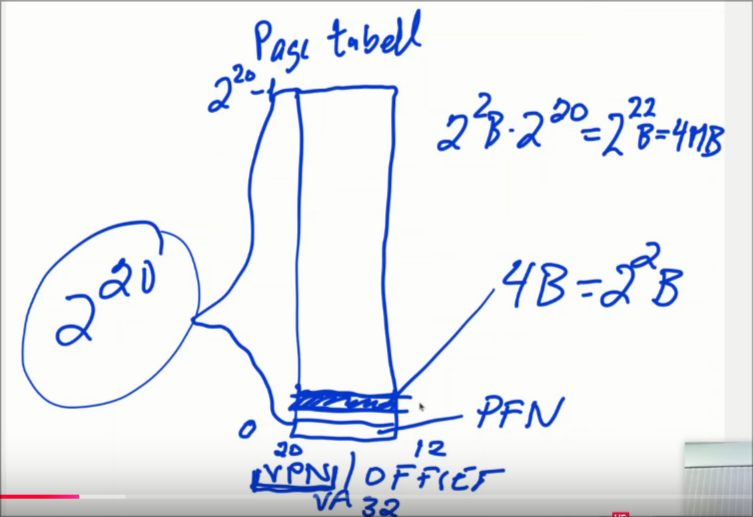 Page tabell
2^20-1
2^2B·2^20=2^22B=4MB
2^20
4B=2^2B
PFN
0
20 12
VPN/OFFSET
VA 32